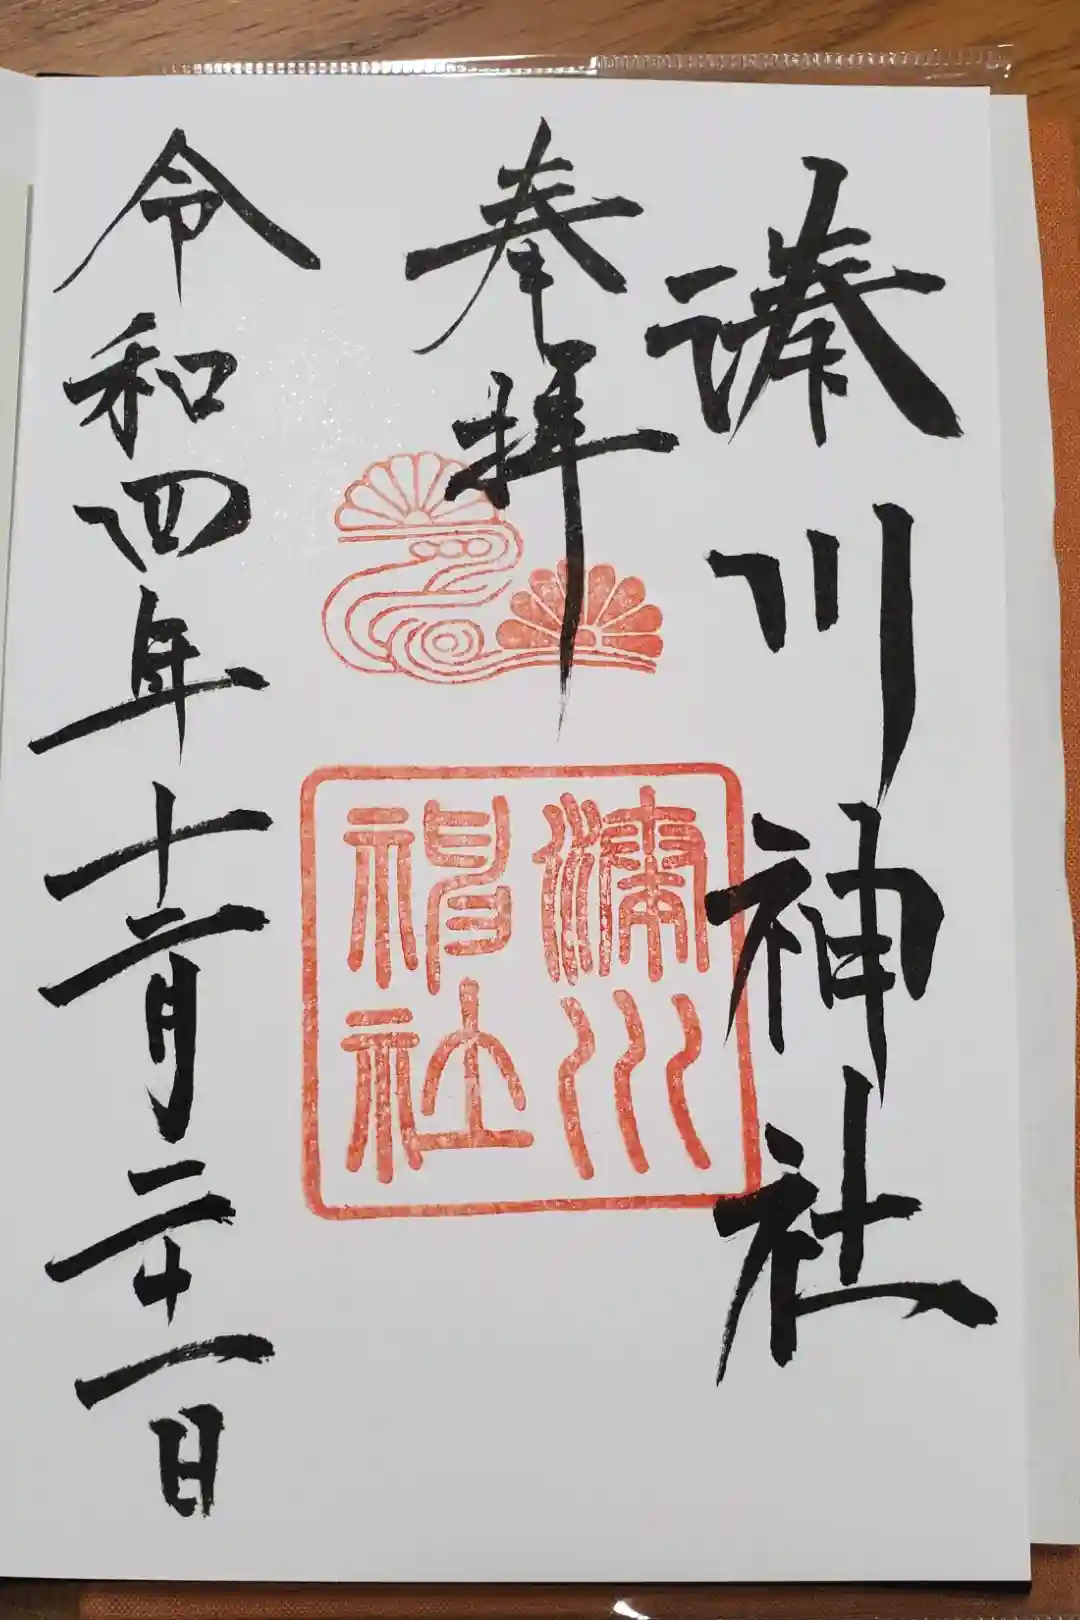 湊川神社
奉拝
令和四年十二月二十一日
湊川
神社